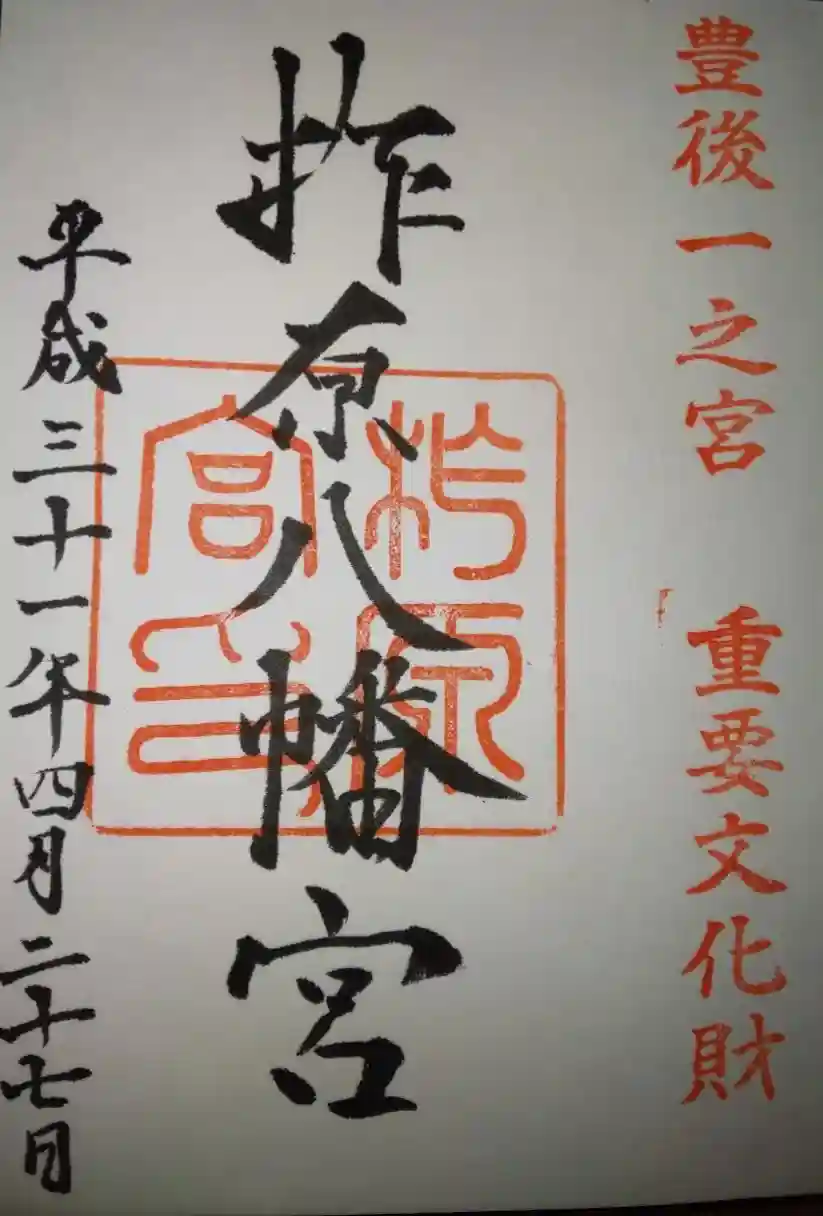 豊後一之宮 重要文化財
柞原八幡宮
柞原宮印
平成三十一年四月二十七日